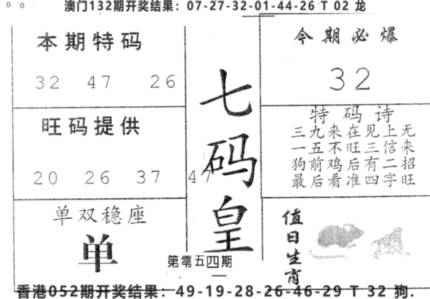 澳门132期开奖结果：07-27-32-01-44-26 T 02 龙
本期特码
32 47 26
旺码提供
20 26 37 47
单双稳座
单
七码皇
第零五四期
今期必爆
32
特码诗
三九来在见上无
一五不旺三信来
狗前鸡后有二招
最后看准四字旺
值日生肖
香港052期开奖结果：49-19-28-26-46-29 T 32 狗.